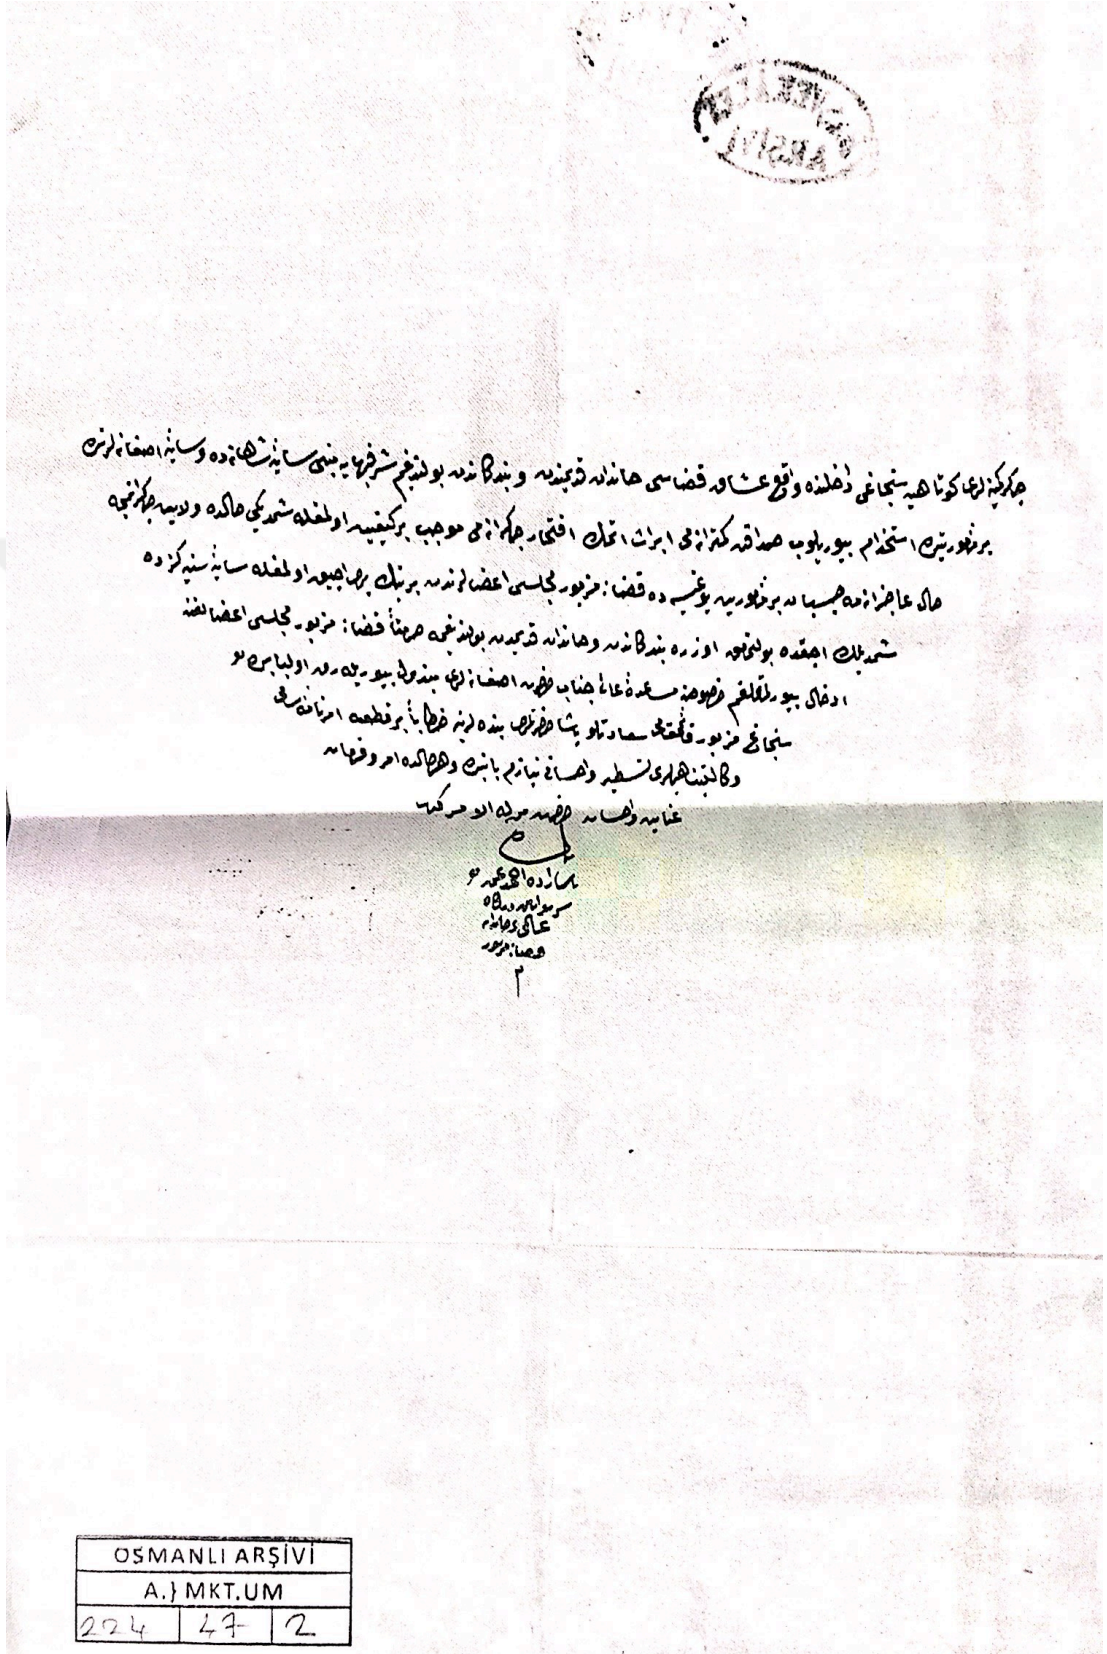 چاکر کمینه لری کوتاهیه سنجاغی داخلنده واقع عشاق قضاسی خاندان قدیمندن و بندکاندن بولندیغم شرفیابه مبنی سایهٔ شاهانه ده و سایهٔ آصفانه لرنده
بر مأموریتده استخدام بیوریلوب صداقت کمترانه می ابراز ایتمك افتخار چاکرانه می موجب بر کیفیت اولمغله شمدیکی حالده ولایت چاکرانمجه
حال عاجزانمه چسبان بر مأموریت یوغیسه ده قضاء مزبور مجلسی اعضالرندن برینك یری آچیق اولمغله سایهٔ سنیه کزده
شمدیلك آچقده بولنمامق اوزره بندکاندن و خاندان قدیمدن بولندیغمه حرمتاً قضاء مزبور مجلسی اعضالغنه
ادخال بیورلمقلغم خصوصنه مساعدهٔ عالی جناب حضرت آصفانه لری مبذول بیوریله رق اولبابده
سنجاغ مزبور قائمقامی سعادتلو پاشا حضرتلری بنده لرینه خطاباً بر قطعه امرنامهٔ سامی
وکالتپناهیلری تسطیر و احسانی نیازم بابنده و هر حالده امر و فرمان
عنایت و احسان حضرت من له الامر کدر
بنده
احمد
قضاء مزبور
م
ARŞİVİ
OSMANLI ARŞİVİ
A.} MKT.UM
224 47 2